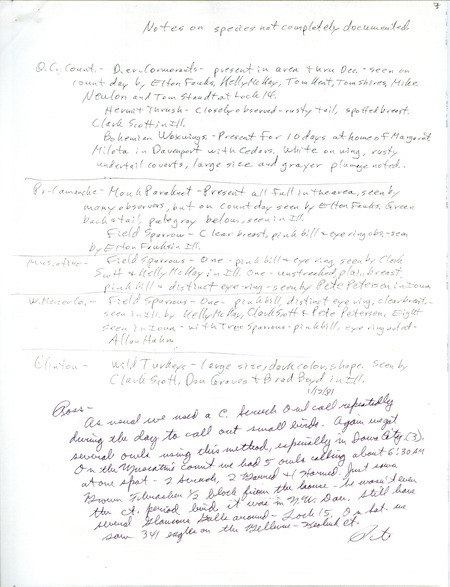 Notes on species not completely documented
Q.C. Count - D. cr. Cormorants - present in area thru Dec. - seen on
count day by Elton Fawks, Kelly McKay, Tom Kent, Tom Shires, Mike
Newlon and Tom Staudt at Lock 14.
Hermit Thrush - Closely observed - rusty tail, spotted breast.
Clark Scott in Ill.
Bohemian Waxwings - Present for 10 days at home of Margaret
Mileta in Davenport with Cedars. White on wing, rusty
undertail coverts, large size and grayer plumage noted.
Pr-Camanche - Monk Parakeet - Present all fall in the area, seen by
many observers, but on count day seen by Elton Fawks. Green
back & tail, pale gray below, seen in Ill.
Field Sparrow - Clear breast, pink bill & eye ring obs. - seen
by Elton Fawks in Ill.
Muscatine - Field Sparrows - One - pink bill & eye ring seen by Clark
Scott & Kelly McKay in Ill. One - unstreaked, plain breast,
pink bill & distinct eye ring - seen by Pete Petersen in Iowa
W. Mercer Co. - Field Sparrows - One - pink bill, distinct eye ring, clear breast -
seen in Ill. by Kelly McKay, Clark Scott & Pete Petersen. Eight
seen in Iowa - with Tree Sparrows - pink bill, eye ring noted -
Allan Hahn.
Clinton - Wild Turkeys - large size, dark color, shape. seen by
Clark Scott, Don Graves & Brad Boyd in Ill.
1/17/81
Ross -
As usual we used a C. Screech Owl call repeatedly
during the day to call out small birds. Again we got
several owls using this method, especially in Iowa City (3).
On the Muscatine count we had 5 owls calling about 6:30 AM
at one spot - 2 Screech, 2 Barred & 1 Horned. Just saw a
Brown Thrasher ½ block from the house - he wasn't even
the ct. period bird, it was in N.W. Dav. Still have
several Glaucous Gulls around - Lock 15. On Sat. we
saw 341 eagles on the Bellevue - ct.
Pete